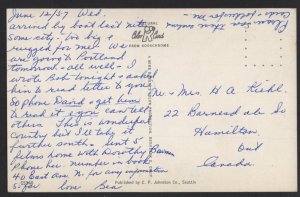 June 12/57 Wed.
arrived by boat last nite
Some city - Too big &
rugged for me! We
are going to Portland
tomorrow - all well - I
wrote Bob tonight & asked
him to read letter to you
So phone David & get him
to read it & you can tell
others This is wonderful
country but I'll take it
further south - Sent 5
films home with Dorothy
phone her number in book
40 East ave N. for any information
love Bea
NATURAL
Color Card
FROM KODACHROME
Published by C. P. Johnston Co., Seattle
Please
Mr & Mrs. H A Kiehl
22 Barnesdale Ave So
Hamilton
Ont
Canada.